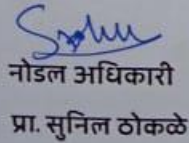 नोडल अधिकारी
प्रा. सुनिल ठोकळे